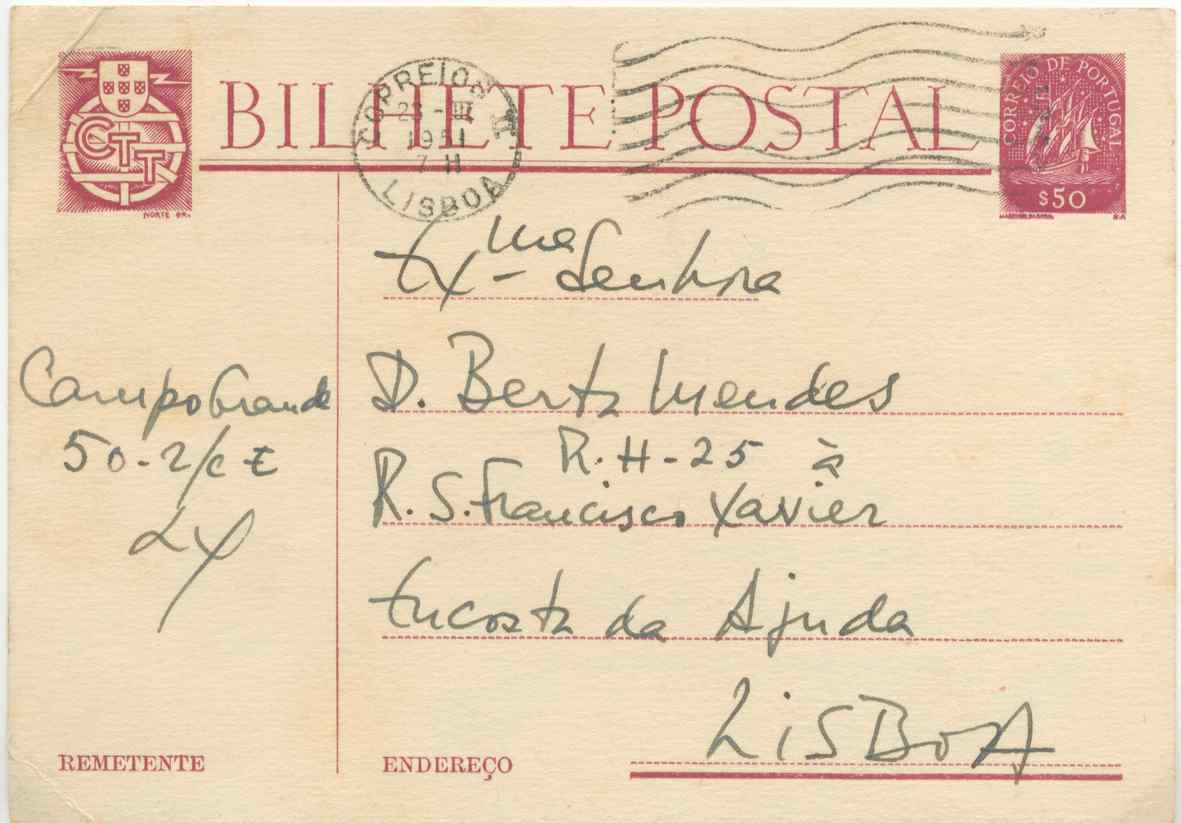 BILHETE POSTAL
CTT
NORTE GR.
CORREIOS
28-III
1951
7 H
LISBOA
CORREIO DE PORTUGAL
$50
Exma Senhora
D. Berta Mendes
R. H-25 à
R. S. Francisco Xavier
Encosta da Ajuda
LISBOA
Campo Grande
50-2/c E
LX
REMETENTE
ENDEREÇO